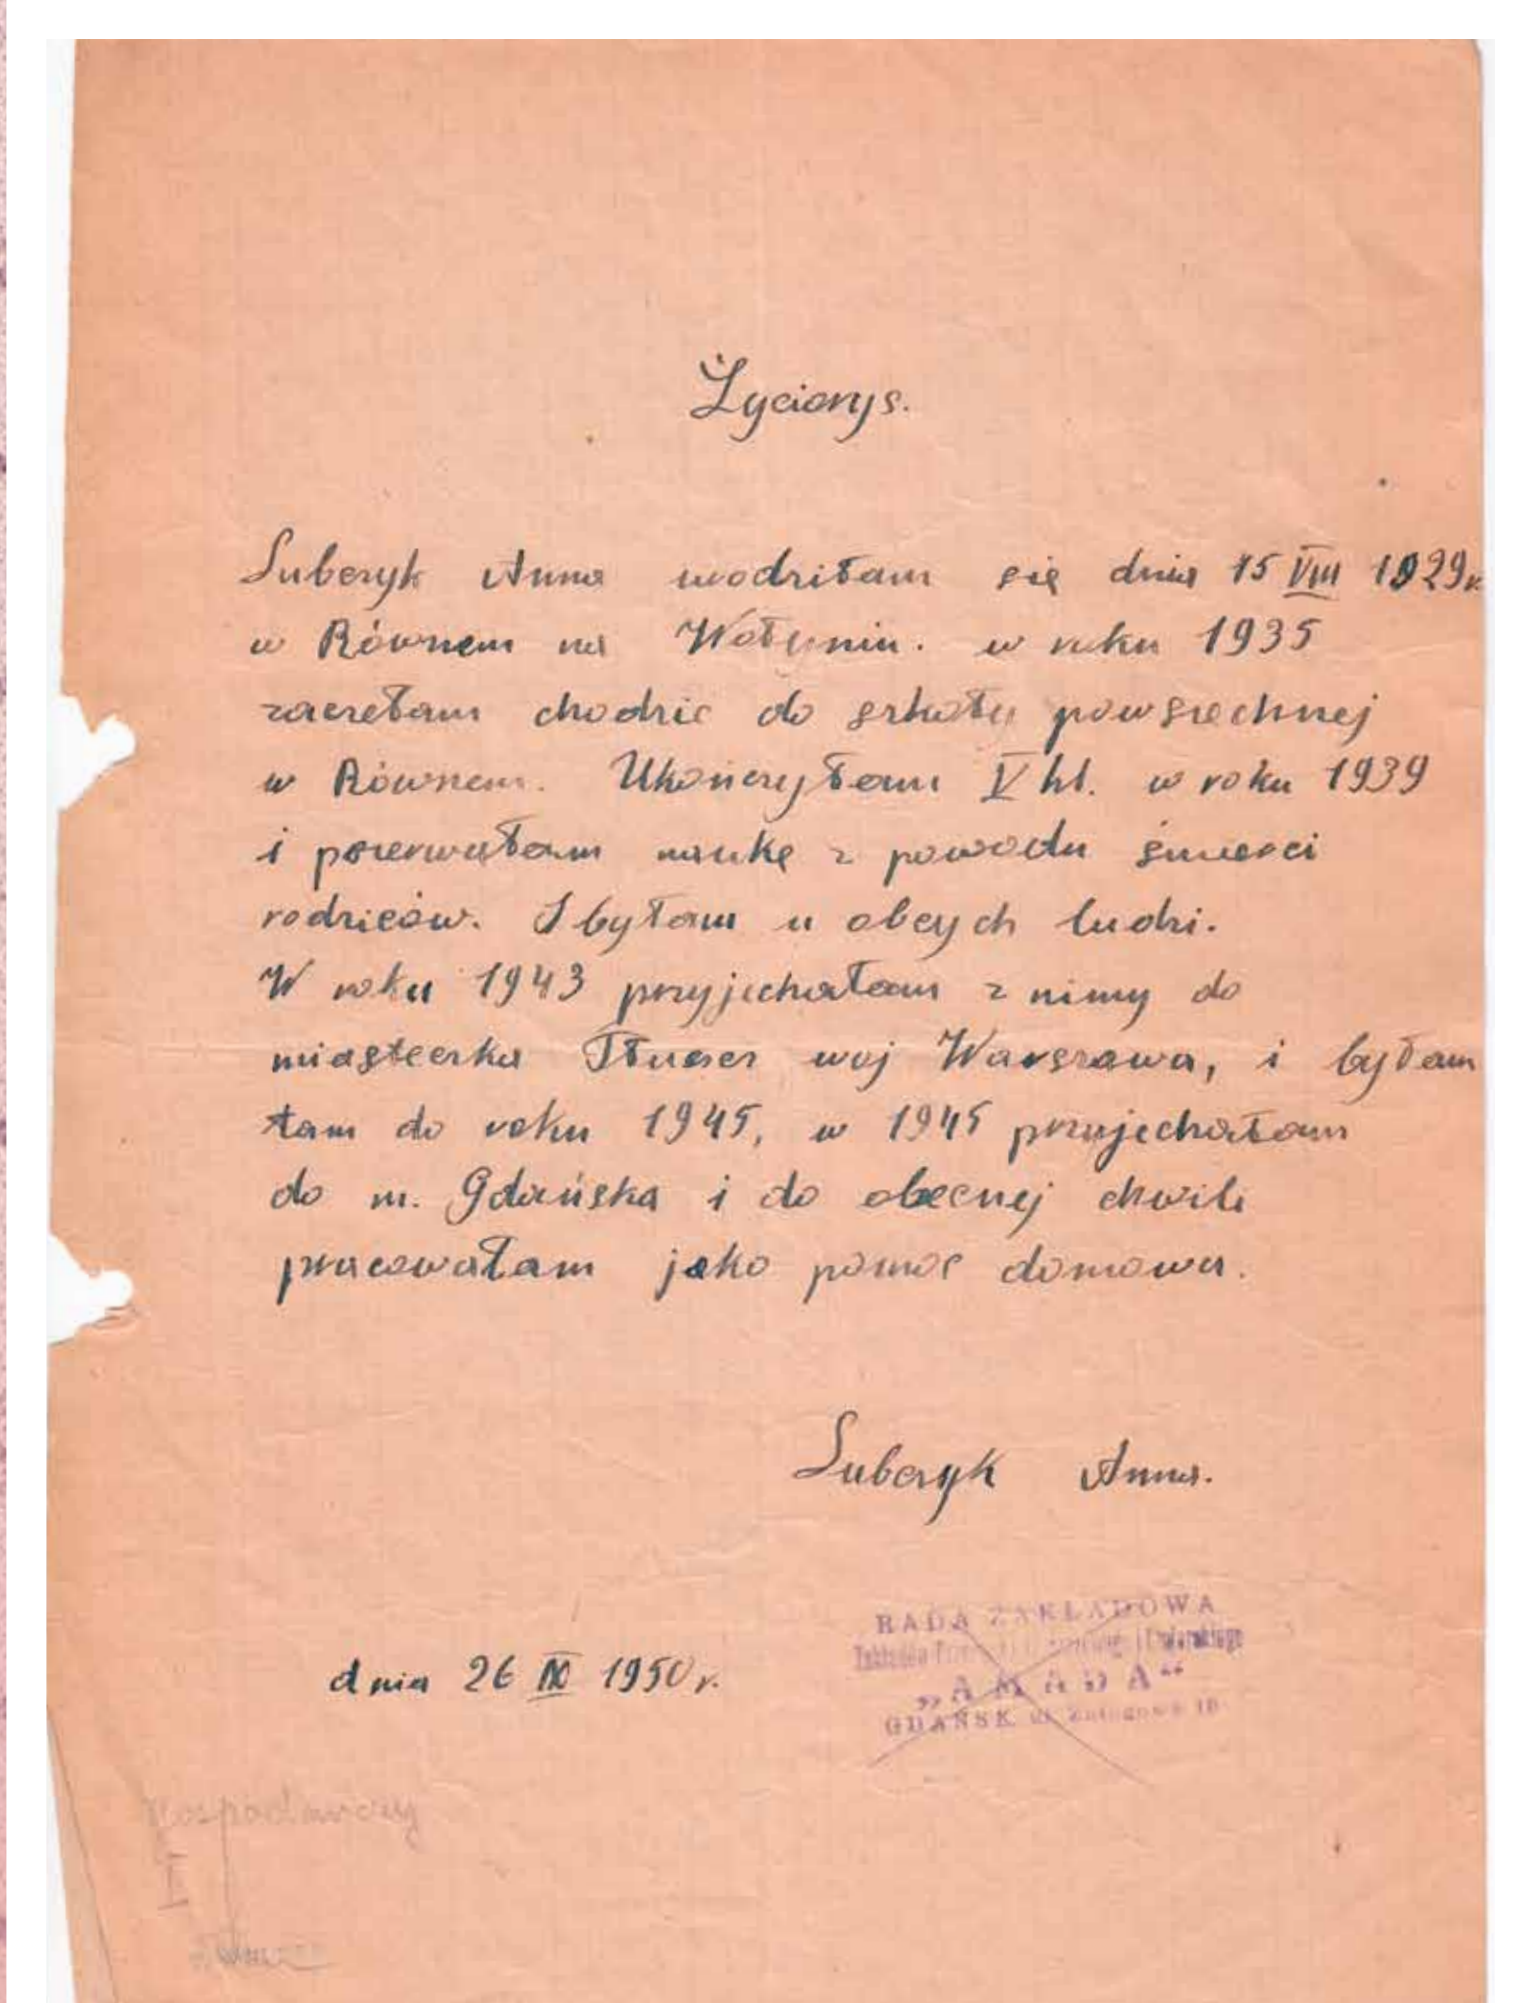 Życiorys.
Lubczyk Anna urodziłam się dnia 15 VIII 1929 r.
w Równem na Wołyniu. w roku 1935
zaczełam chodzic do szkoły powszechnej
w Równem. Ukończyłam V kl. w roku 1939
i przerwałam naukę z powodu śmierci
rodziców. I byłam u obcych ludzi.
W roku 1943 przyjechałam z nimy do
miasteczka Tłuszcz woj Warszawa, i byłam
tam do roku 1945, w 1945 przyjechałam
do m. Gdańska i do obecnej chwili
pracowałam jako pomoc domowa.
Lubczyk Anna.
RADA ZAKŁADOWA
„AMADA“
GDAŃSK ul.
dnia 26 IX 1950 r.
I